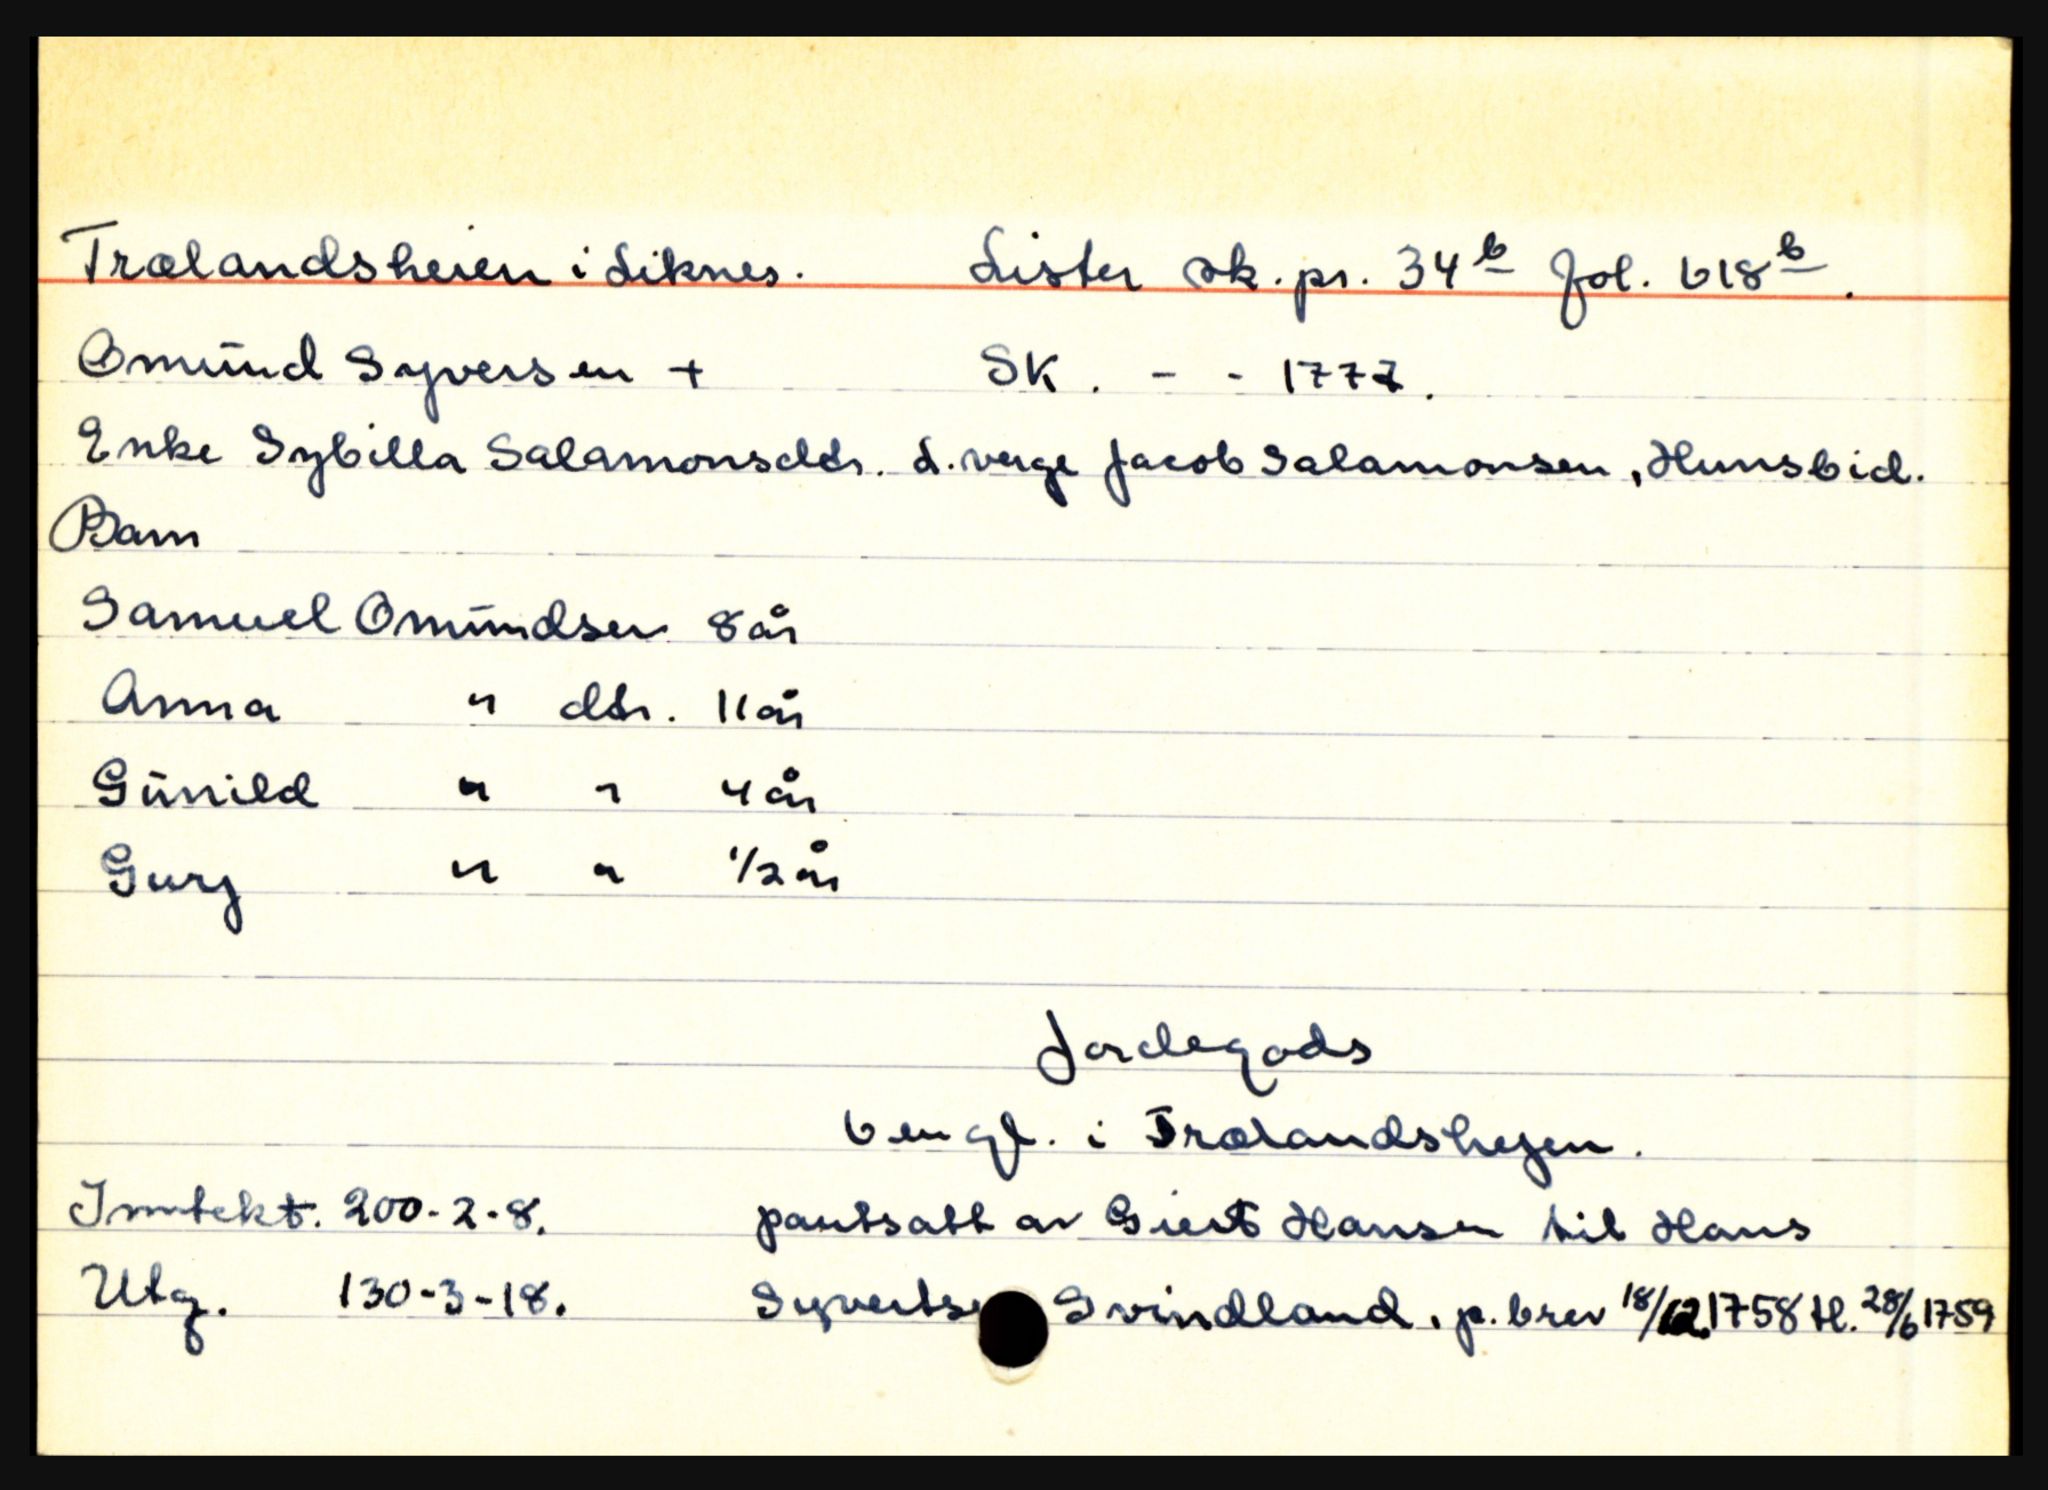 Trælandsheien i Liknes. Lister sk. pr. 34b fol. 618b.
Omünd Syversen + SK. - - 1777.
Enke Sybilla Salamonsdtr. L. verge Jacob Salamonsen, Hunsbid.
Barn
Samuel Omündsen 8 år
Anna " dtr. 11 år
Günild " " 4 år
Gury " " 1/2 år
Jordegods
6 engl. i Trælandshejen.
Inntekt. 200-2-8. pantsatt av Giert Hansen til Hans
Utg. 130-3-18. Syvertse Gvindland, p. brev 18/12.1758 tl. 28/6 1759